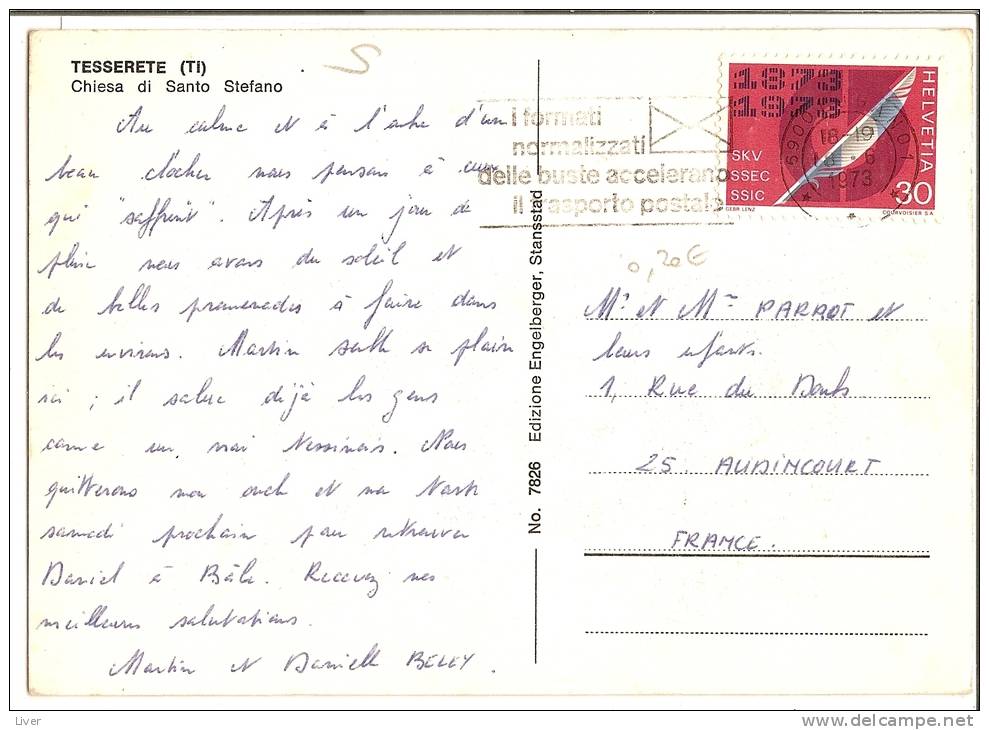 TESSERETE (TI)
Chiesa di Santo Stefano
Au calme et à l'ombre d'un
beau clocher nous pensons à ceux
qui "souffrent". Après un jour de
pluie nous avons du soleil et
de belles promenades à faire dans
les environs. Martin semble se plaire
ici ; il salue déjà les gens
comme un vrai Tessinois. Nous
quitterons mon oncle et ma tante
samedi prochain pour retrouver
Daniel à Bâle. Recevez nos
meilleures salutations.
Martin et Danielle BELEY.
No. 7826 Edizione Engelberger, Stansstad
I formati
normalizzati
delle buste accelerano
il trasporto postale
1873
1973
SKV
SSEC
SSIC
HELVETIA
30
GEBR LENZ
COURVOISIER S A
6900
18-19
18. 6
1973
0,20€
Mr et Mme PARROT et
leurs enfants.
1, Rue du Doubs
25. AUDINCOURT
FRANCE.
Liver
www.delcampe.net